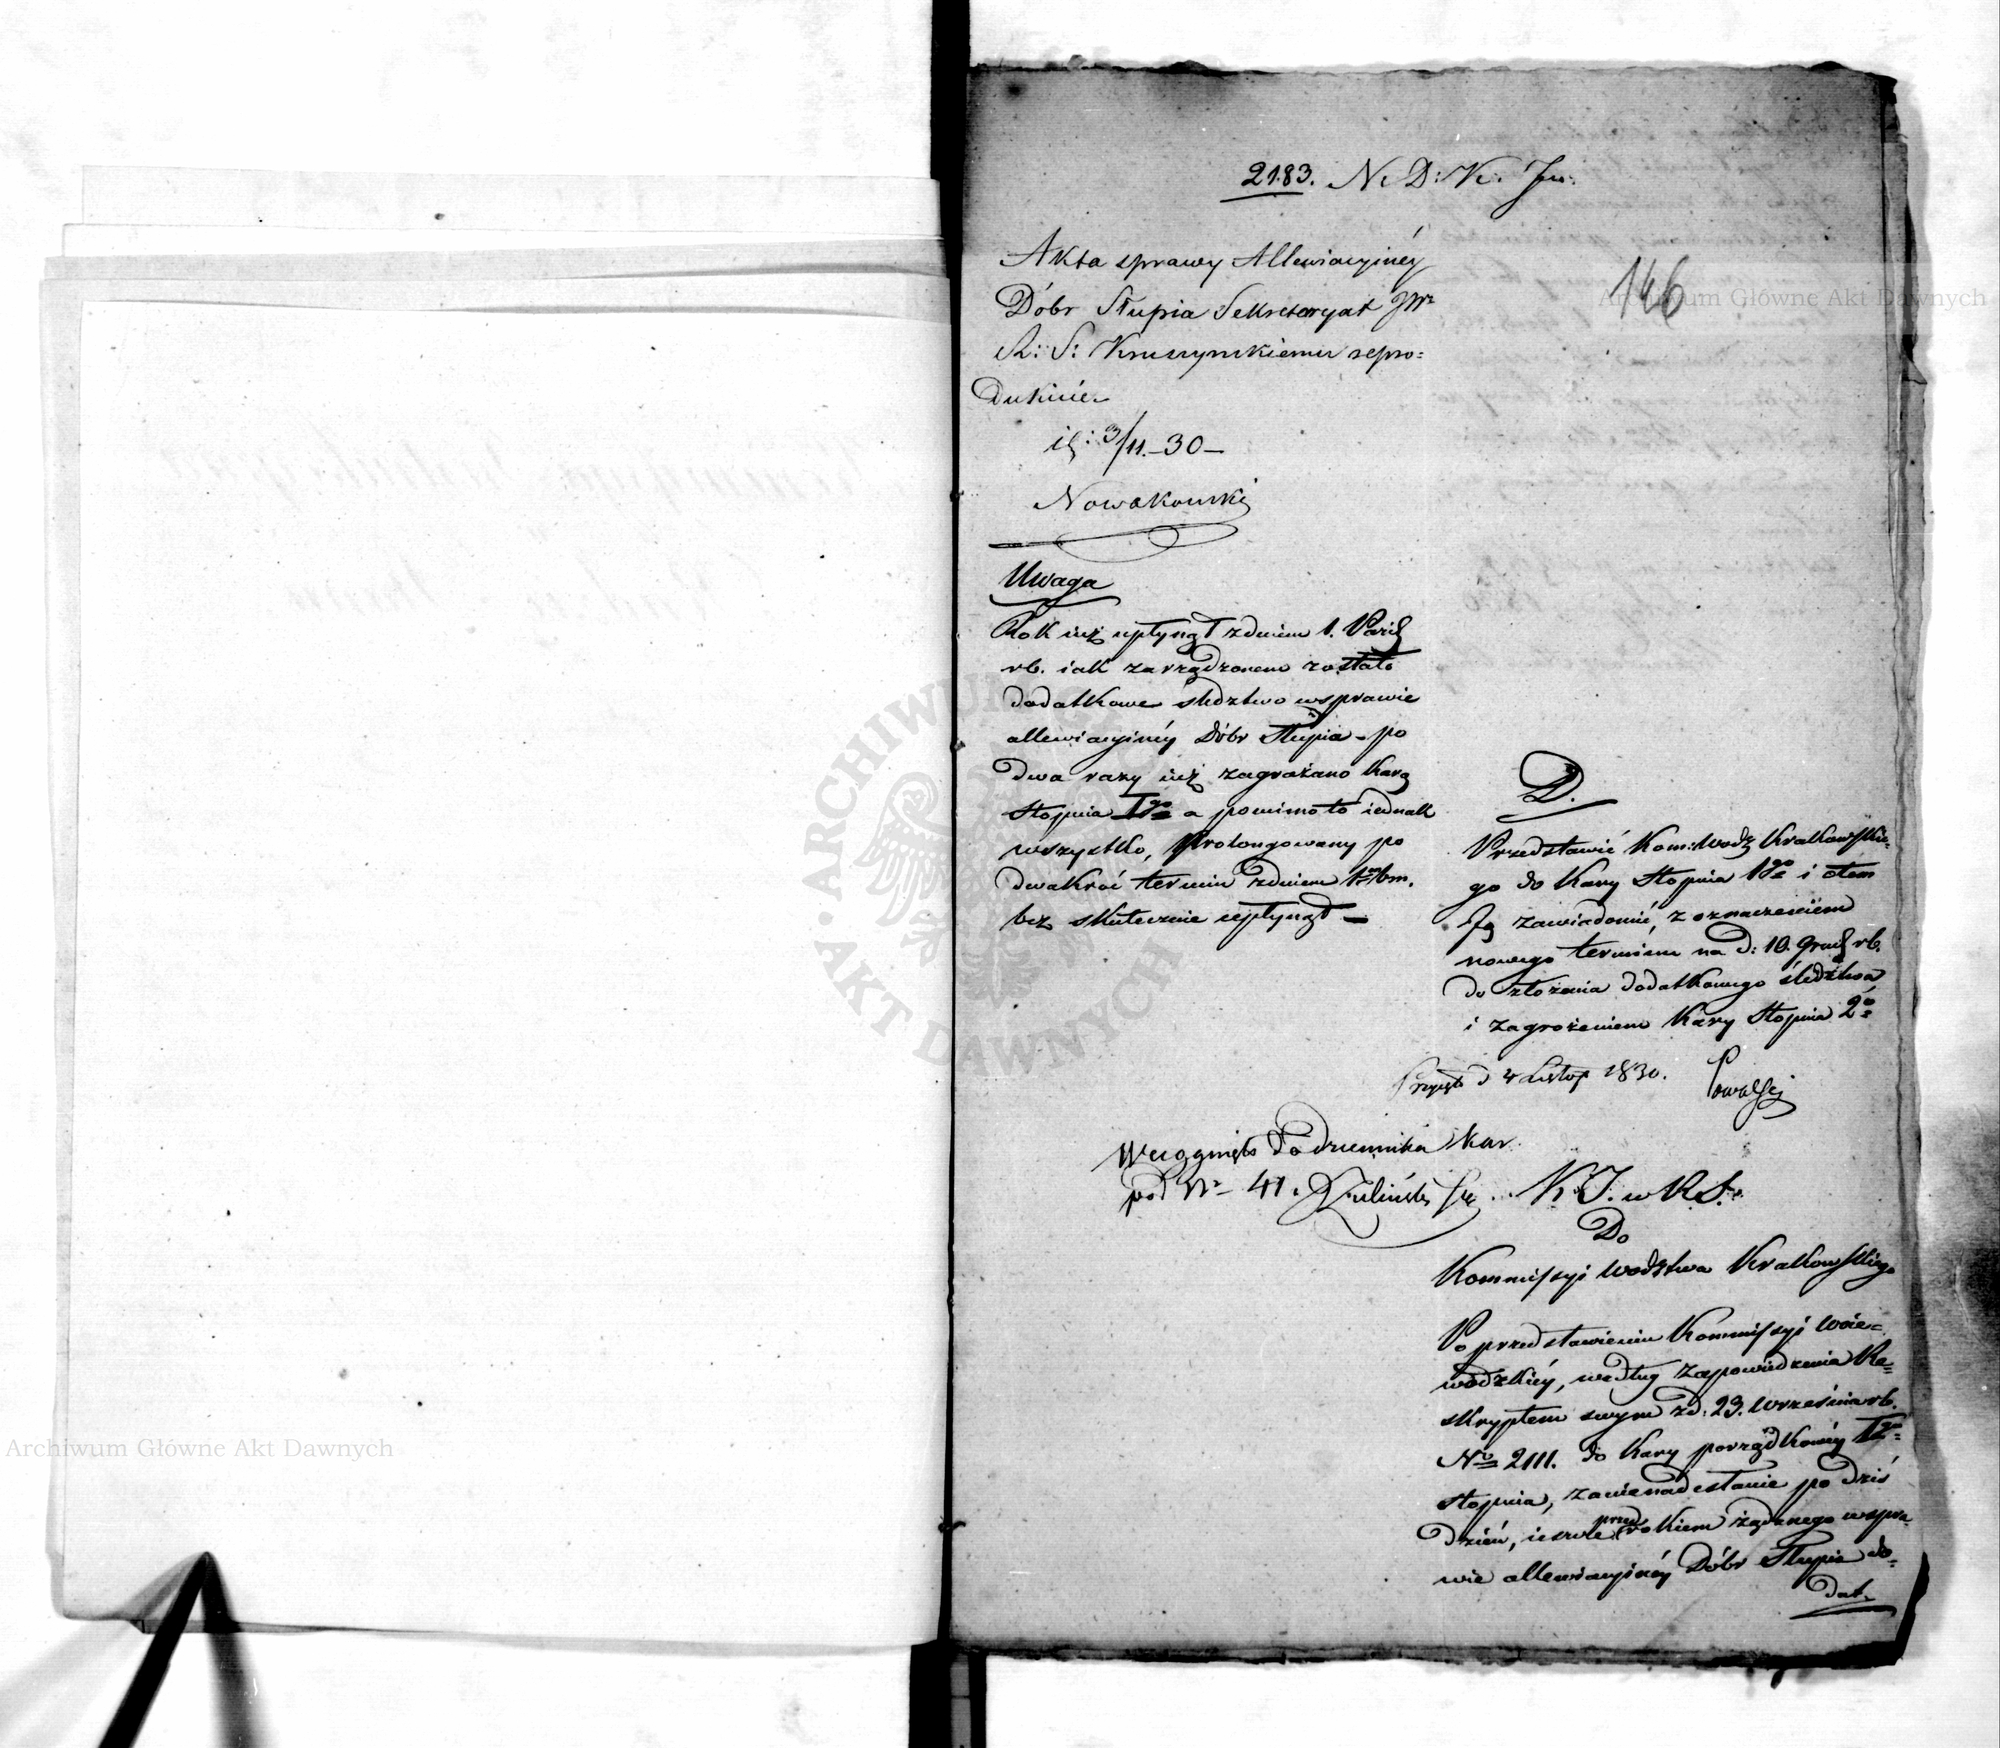 2183. N. D: K.
146
Akta sprawy Allewiacyinéy
Dóbr Słupia Sekretaryat JWu
R: S: Kruszyńskiemu repro=
dukuie.
3/11.-30-
Nowakowski
Uwaga
Rok iuż upłynął z dniem 1. Paźd
rb. iak zarządzonem zostało
dodatkowe śledztwo w sprawie
allewiacyinéy Dóbr Słupia - po
dwa razy iuż zagrażano karą
stopnia Igo a pomimo to iednak
wszystko, Prolongowany po
dwakroć termin z dniem 1m bm.
bez skutecznie upłynął -
D.
Przedstawić Kom: Wodz Krakowskie-
go do kary stopnia 1go i otem
Ją zawiadomić, z oznaczeniem
nowego terminu na d: 10. Grud rb.
do złożenia dodatkowego śledztwa
i zagrożeniem kary stopnia 2o
d 4 Listop 1830.
Wciągnięto do dziennika kar
pod Nr 41. Zieliński
K. J. w R S.
Do
Kommissyi Wodztwa Krakowskiego
Po przedstawieniu Kommissyi Woie=
wódzkiéy, według zapowiedzenia Re=
skryptem swym z d: 23. Września rb.
No 2111. do kary porządkowéy Igo
stopnia, za nienadesłanie po dziś
dzień, ieszcze przed rokiem żądanego w spra-
wie allewiacyinéy Dóbr Słupia do=
dat-
ARCHIWUM GŁÓWNE AKT DAWNYCH
Archiwum Główne Akt Dawnych
Archiwum Główne Akt Dawnych